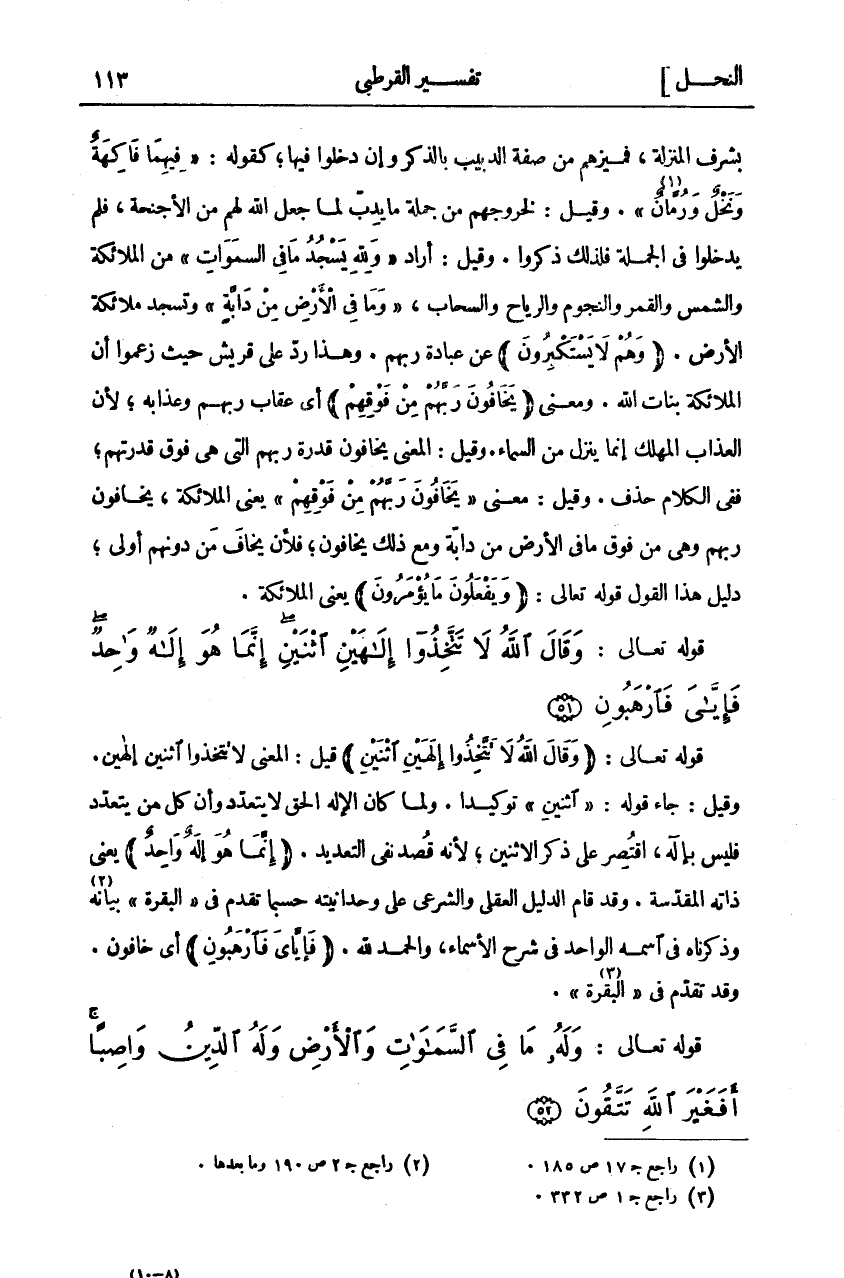 النحل] تفسير القرطبى ١١٣
بشرف المنزلة ، فميزهم من صفة الدبيب بالذكر وإن دخلوا فيها؛ كقوله : « فِيهِمَا فَاكِهَةٌ
وَنَخْلٌ وَرُمَّانٌ(١) » . وقيل : لخروجهم من جملة ما يدِبّ لما جعل الله لهم من الأجنحة ، فلم
يدخلوا فى الجملة فلذلك ذكروا . وقيل : أراد « وَلِلهِ يَسْجُدُ مَا فِى السمَوَاتِ » من الملائكة
والشمس والقمر والنجوم والرياح والسحاب ، « وَمَا فِى الْأَرْضِ مِنْ دَابَّةٍ » وتسجد ملائكة
الأرض . ﴿ وَهُمْ لَا يَسْتَكْبِرُونَ ﴾ عن عبادة ربهم . وهذا ردّ على قريش حيث زعموا أن
الملائكة بنات الله . ومعنى ﴿ يَخَافُونَ رَبَّهُمْ مِنْ فَوْقِهِمْ ﴾ أى عقاب ربهم وعذابه ؛ لأن
العذاب المهلك إنما ينزل من السماء . وقيل : المعنى يخافون قدرة ربهم التى هى فوق قدرتهم ؛
ففى الكلام حذف . وقيل : معنى « يَخَافُونَ رَبَّهُمْ مِنْ فَوْقِهِمْ » يعنى الملائكة ، يخافون
ربهم وهى من فوق ما فى الأرض من دابّة ومع ذلك يخافون ؛ فلأن يخافَ مَن دونهم أولى ؛
دليل هذا القول قوله تعالى : ﴿ وَيَفْعَلُونَ مَا يُؤْمَرُونَ ﴾ يعنى الملائكة .
قوله تعالى : وَقَالَ ٱللَّهُ لَا تَتَّخِذُوٓا إِلَـٰهَيْنِ ٱثْنَيْنِ ۖ إِنَّمَا هُوَ إِلَـٰهٌ وَٰحِدٌ ۖ
فَإِيَّـٰىَ فَٱرْهَبُونِ ٥١
قوله تعالى : ﴿ وَقَالَ اللهُ لَا تَتَّخِذُوا إِلَهَيْنِ ٱثْنَيْنِ ﴾ قيل : المعنى لا تتخذوا ٱثنين إلٰهين .
وقيل : جاء قوله : « ٱثنين » توكيدا . ولما كان الإله الحق لا يتعدّد وأن كل من يتعدّد
فليس بإلٰه ، اقتُصِر على ذكر الاثنين ؛ لأنه قُصد نفى التعديد . ﴿ إِنَّمَا هُوَ إِلَهٌ وَاحِدٌ ﴾ يعنى
ذاته المقدّسة . وقد قام الدليل العقلى والشرعى على وحدانيته حسبما تقدم فى « البقرة » بيانه(٢)
وذكرناه فى ٱسمه الواحد فى شرح الأسماء ، والحمد لله . ﴿ فَإِيَّاىَ فَٱرْهَبُونِ ﴾ أى خافون .
وقد تقدّم فى « البقرة(٣) » .
قوله تعالى : وَلَهُۥ مَا فِى ٱلسَّمَـٰوَٰتِ وَٱلْأَرْضِ وَلَهُ ٱلدِّينُ وَاصِبًا ۚ
أَفَغَيْرَ ٱللَّهِ تَتَّقُونَ ٥٢
(١) راجع جـ ١٧ ص ١٨٥ . (٢) راجع جـ ٢ ص ١٩٠ وما بعدها .
(٣) راجع جـ ١ ص ٣٣٢ .
(١٠–٨)